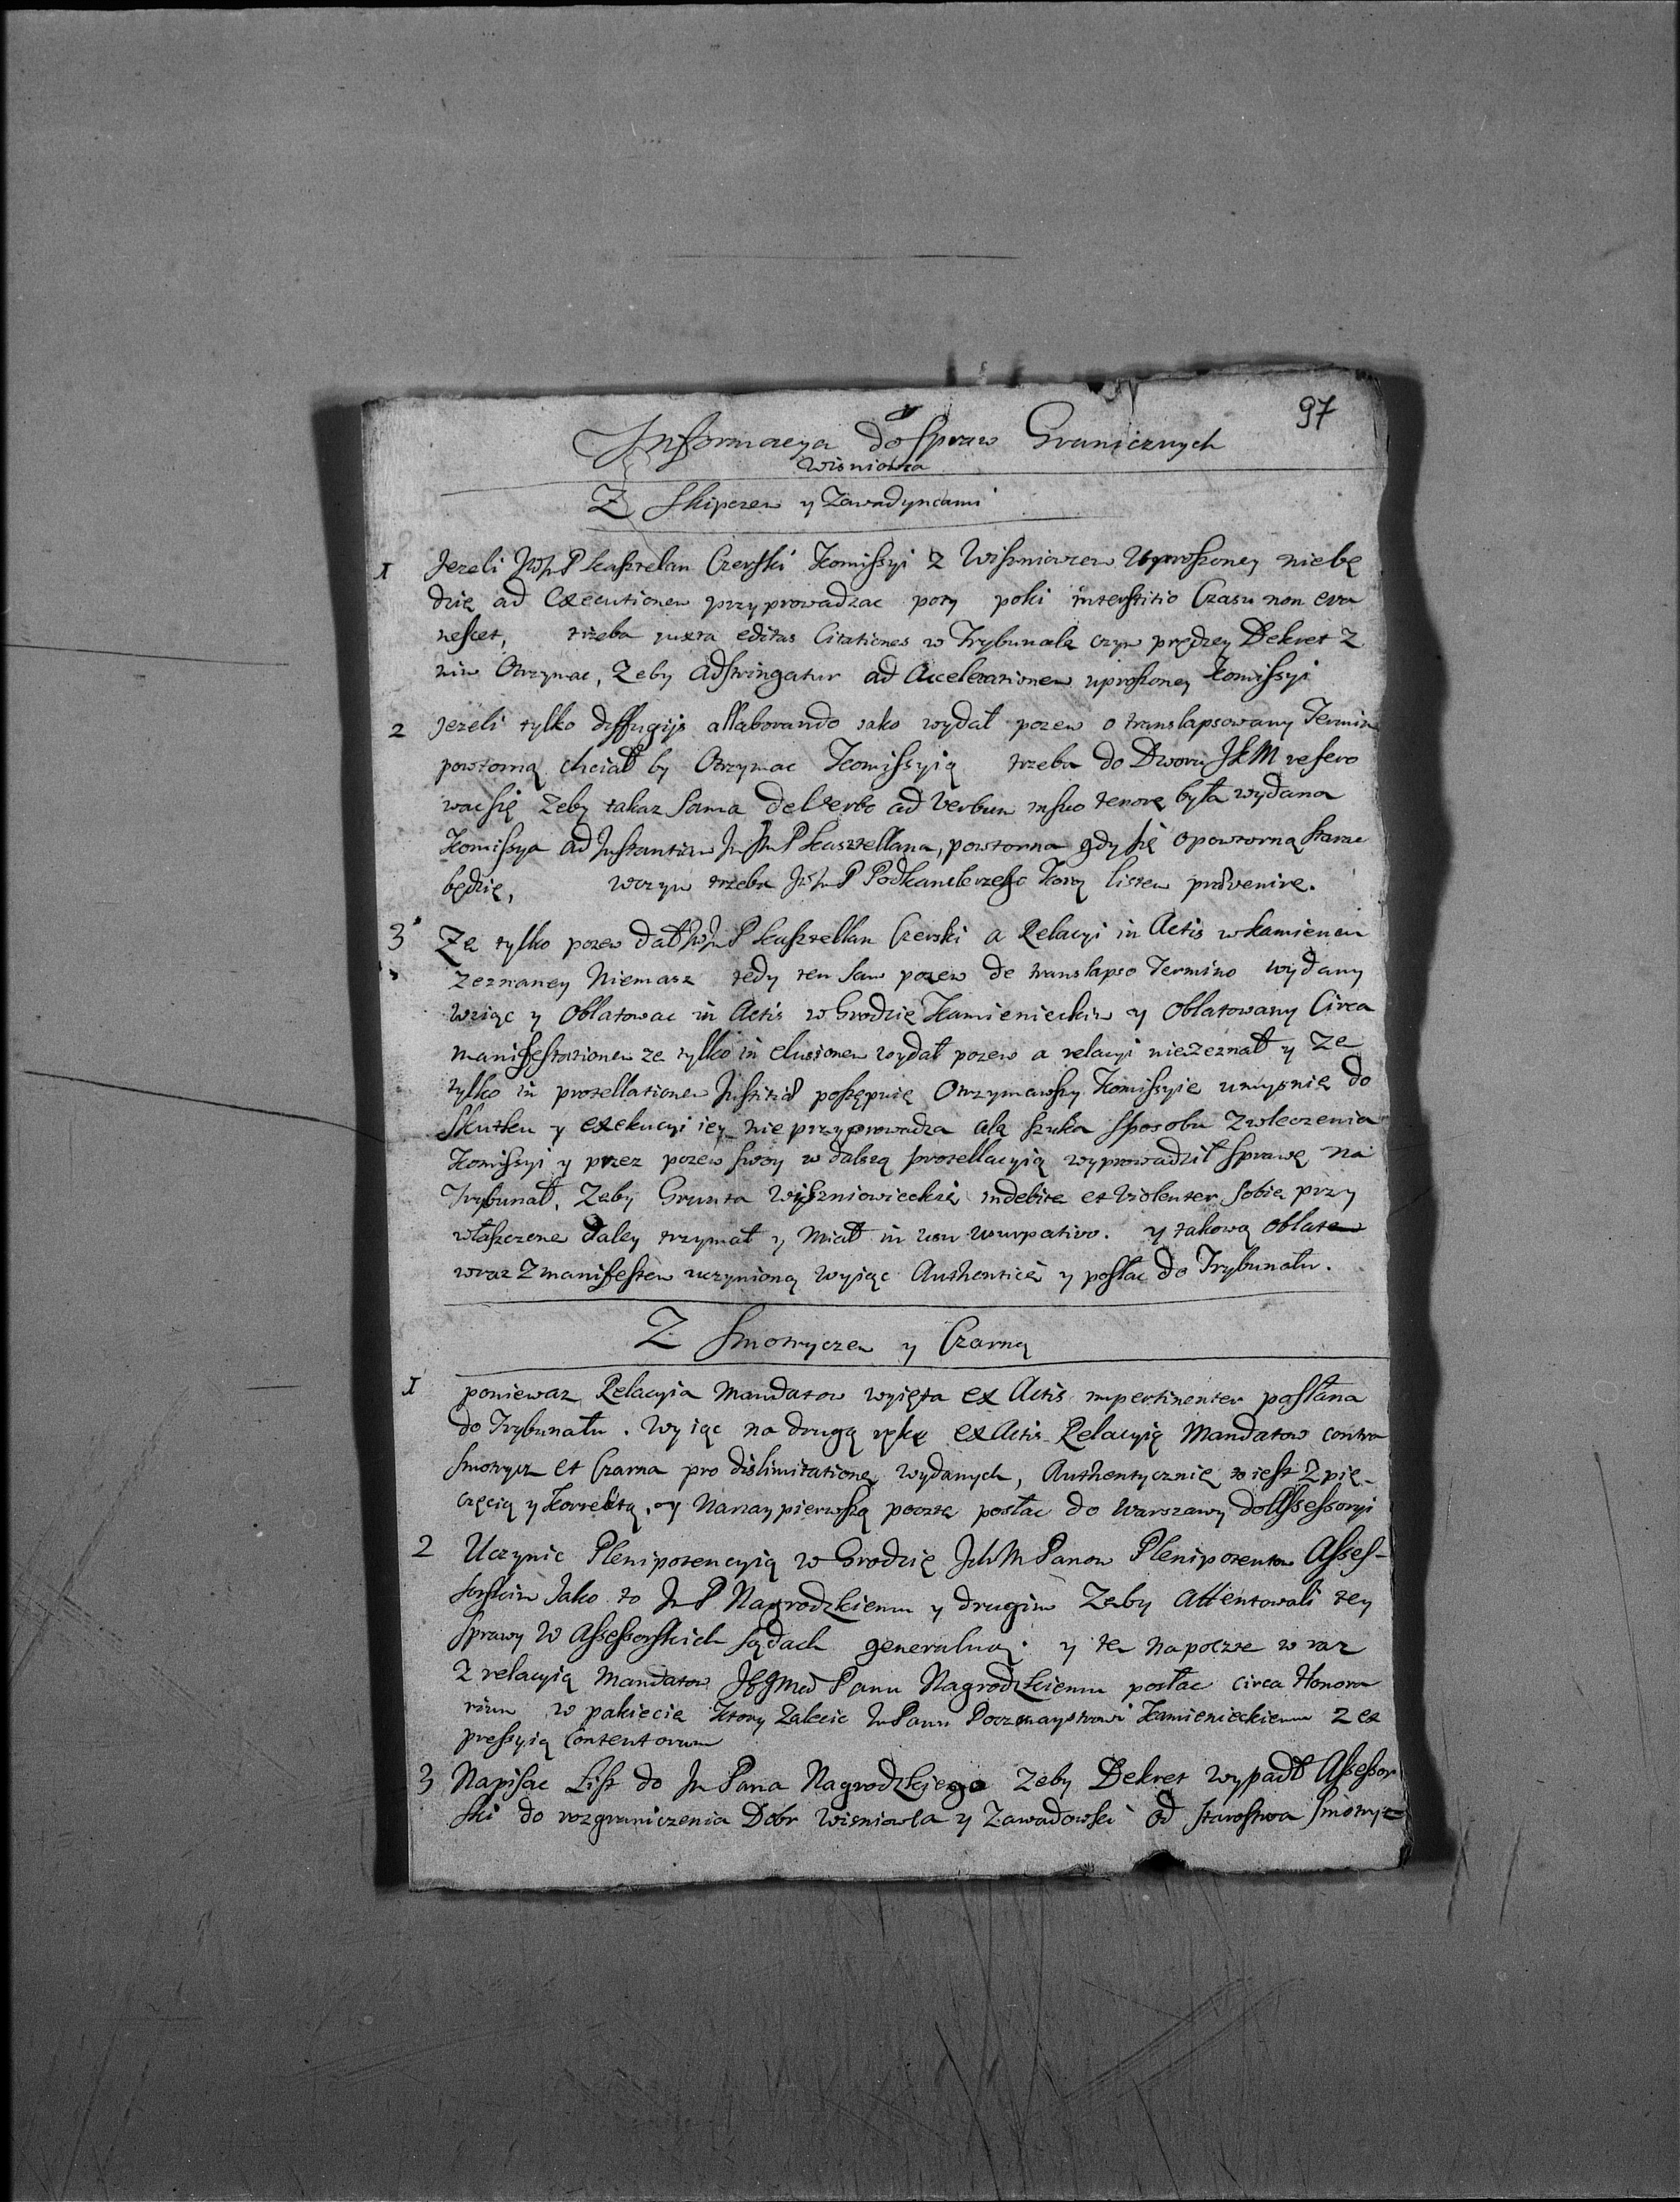 97
Informacya do Spraw Granicznych
Wisniowca
Z Skipczem y Zawadyncami
1 Jezeli JWJm P Kasztelan Czerski Komissyi z Wiszniowcem Uproszoney niebę
dzie ad Executionem przyprowadzac poty poki interstitio Czasu non eva
nescet, trzeba juxta editas Citationes w Trybunale czym prędzey Dekret z
nim Otrzymac, Zeby adstringatur ad Accelerationem uproszoney Komissyi
2 Jezeli tylko diffugijs allaborando jako wydał pozew o translapsowany Termin
powtorną chciał by Otrzymac Komissyią trzeba do Dworu JKM refero
wac się Zeby takaz Sama de Verbo ad Verbum in suo tenore była wydana
Komissya ad Instantiam JWJm P Kasztellana, powtorna gdy się o powtorną starac
będzie, wczym trzeba JWJm P Podkanclerzego Kor listem prævenire.
3 Ze tylko pozew dał JWJm P Kasztellan Czerski a Relacyi in Actis w Kamiencu
zeznaney Niemasz tedy ten Sam pozew de translapso Termino wydany
Wziąc y Oblatowac in Actis w Grodzie Kamienieckim y Oblatowany Circa
manifestationem ze tylko in elusionem wydał pozew a relacyi niezeznał y ze
tylko in protellationem Justitiæ postępuie Otrzymawszy Komissyie umysnie do
Skutku y exekucyi iey nie przyprowadza ale szuka sposobu Zwleczenia
Komissyi y przez pozew swoy w dalszą protellacyią wyprowadził sprawę na
Trybunał, Zeby Grunta Wiszniowieckie indebite et violenter sobie przy
właszczone daley trzymał y Miał in usu usurpativo. y takową oblatę
wraz z manifestem uczynioną wyjąc Authenticè y posłac do Trybunału.
Z Smotryczem y Czarną
1 poniewaz Relacyia Mandatow wyięta ex Actis impertinenter posłana
do Trybunału. Wyiąc na drugą rękę ex Actis Relacyią Mandatow contra
Smotrycz et Czarna pro dislimitatione wydanych, Authentycznie to iest z pie_
częcią y Korrektą, y Nanaypierwszą pocztę posłac do Warszawy do Assessoryi
2 Uczynic Plenipotencyią w Grodzie JchM Panow Plenipotentow Asses-
sorskim Jako to Jm P Nagrodzkiemu y drugim Zeby Attentowali tey
sprawy w Assessorskich sądach generalną. y te na poczte w raz
z relacyią Mandatow Panu Nagrodzkiemu posłac circa Honora
rium w pakiecie Ktory Zalecic Jm Panu Poczmaystrowi Kamienieckiemu z ex
pressyią Contentorum
3 Napisac List do Jm Pana Nagrodzkiego zeby Dekret wypadł Assessor
ski do rozgraniczenia Dobr Wisniowca y Zawadowki od Starostwa Smotryc